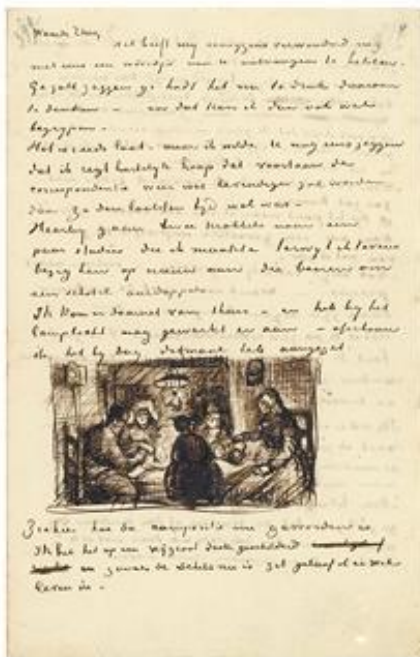 Waarde Theo,
Het heeft mij eenigzins verwonderd nog
niet eens een woordje van U ontvangen te hebben.
Ge zult zeggen ge hadt het veel te druk daaraan
te denken – en dat kan ik dan ook wel
begrijpen –
Het is reeds laat – maar ik wilde U nog eens zeggen
dat ik regt hartelijk hoop dat voortaan de
correspondentie weer wat levendiger zal worden
dan ze den laatsten tijd wel was –
Hierbij gaan twee krabbels naar een
paar studies die ik maakte terwijl ik tevens
bezig ben op nieuw aan die boeren om
een schotel aardappels
Ik kom er daarnet van thuis – en heb bij het
lamplicht nog gewerkt er aan – ofschoon
ik het bij dag ditmaal heb aangezet
Ziehier hoe de compositie nu geworden is.
Ik heb het op een vrij groot doek geschilderd
en zooals de schets nu is zit geloof ik er wel
leven in –